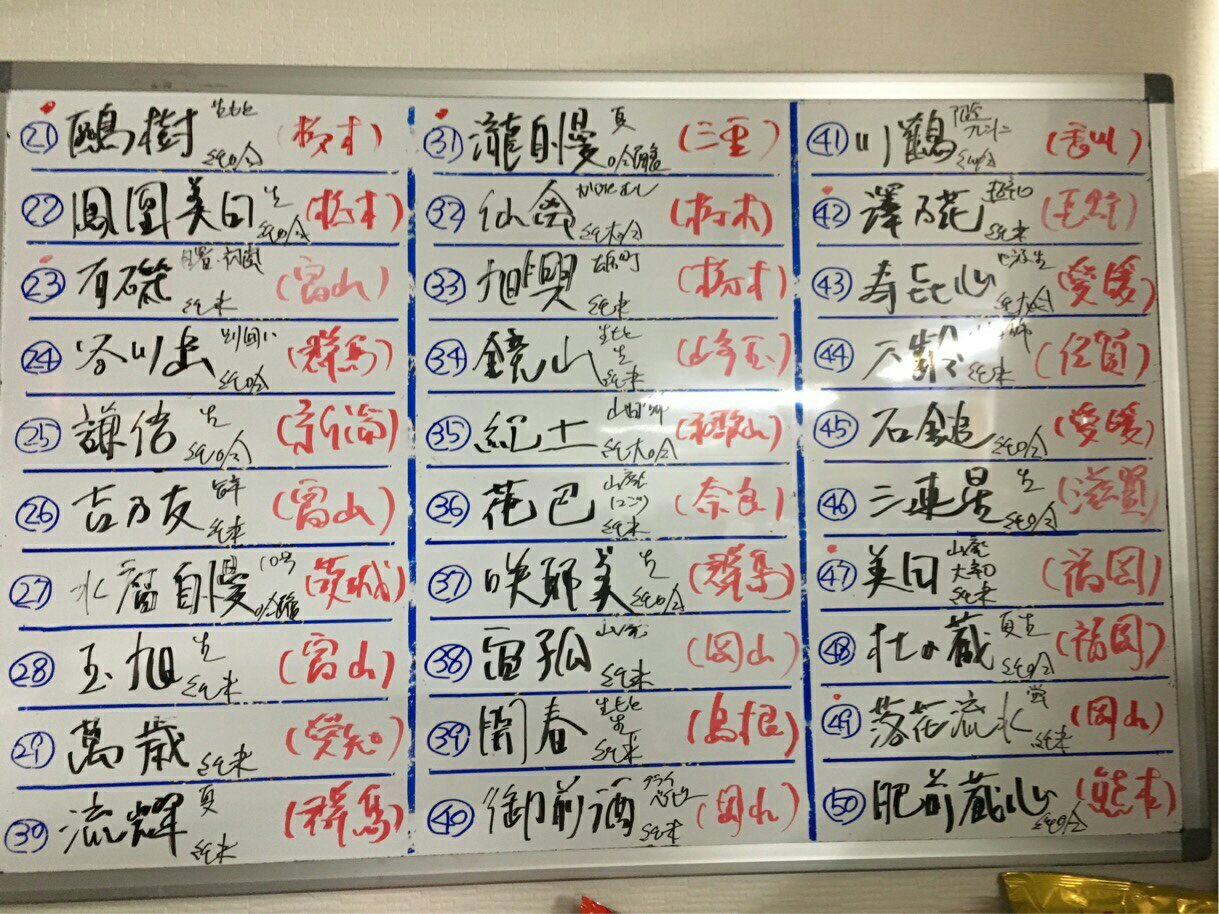 ㉑ 鷗樹 生もと 純吟 (栃木)
㉒ 鳳凰美田 生 純吟 (栃木)
㉓ 有磯 純米 (富山)
㉔ 谷川岳 純吟 (群馬)
㉕ 謙信 生 純吟 (新潟)
㉖ 吉乃友 純米 (富山)
㉗ 水府自慢 10号 吟醸 (茨城)
㉘ 玉旭 生 純米 (富山)
㉙ 萬歳 純米 (愛知)
㉚ 流輝 夏 純米 (群馬)
㉛ 瀧自慢 夏 吟醸 (三重)
㉜ 仙禽 かぶとむし 純大吟 (栃木)
㉝ 旭興 雄町 純米 (栃木)
㉞ 鏡山 生もと 生 純米 (埼玉)
㉟ 紀土 山田錦 純大吟 (和歌山)
㊱ 花巴 山廃 にごり 純米 (奈良)
㊲ 咲耶美 生 純吟 (群馬)
㊳ 宙狐 山廃 純米 (岡山)
㊴ 開春 生もと 生 純米 (島根)
㊵ 御前酒 純米 (岡山)
㊶ 川鶴 純吟 (香川)
㊷ 澤乃花 超辛口 純米 (長野)
㊸ 寿喜心 純大吟 (愛媛)
㊹ 万齢 純米 (佐賀)
㊺ 石鎚 純吟 (愛媛)
㊻ 三連星 生 純吟 (滋賀)
㊼ 美田 山廃 大辛口 純米 (福岡)
㊽ 杜の蔵 夏生 純吟 (福岡)
㊾ 落花流水 純米 (岡山)
㊿ 肥前蔵心 純吟 (熊本)